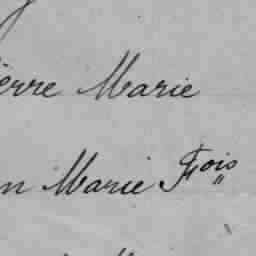 ierre Marie
n Marie Fois